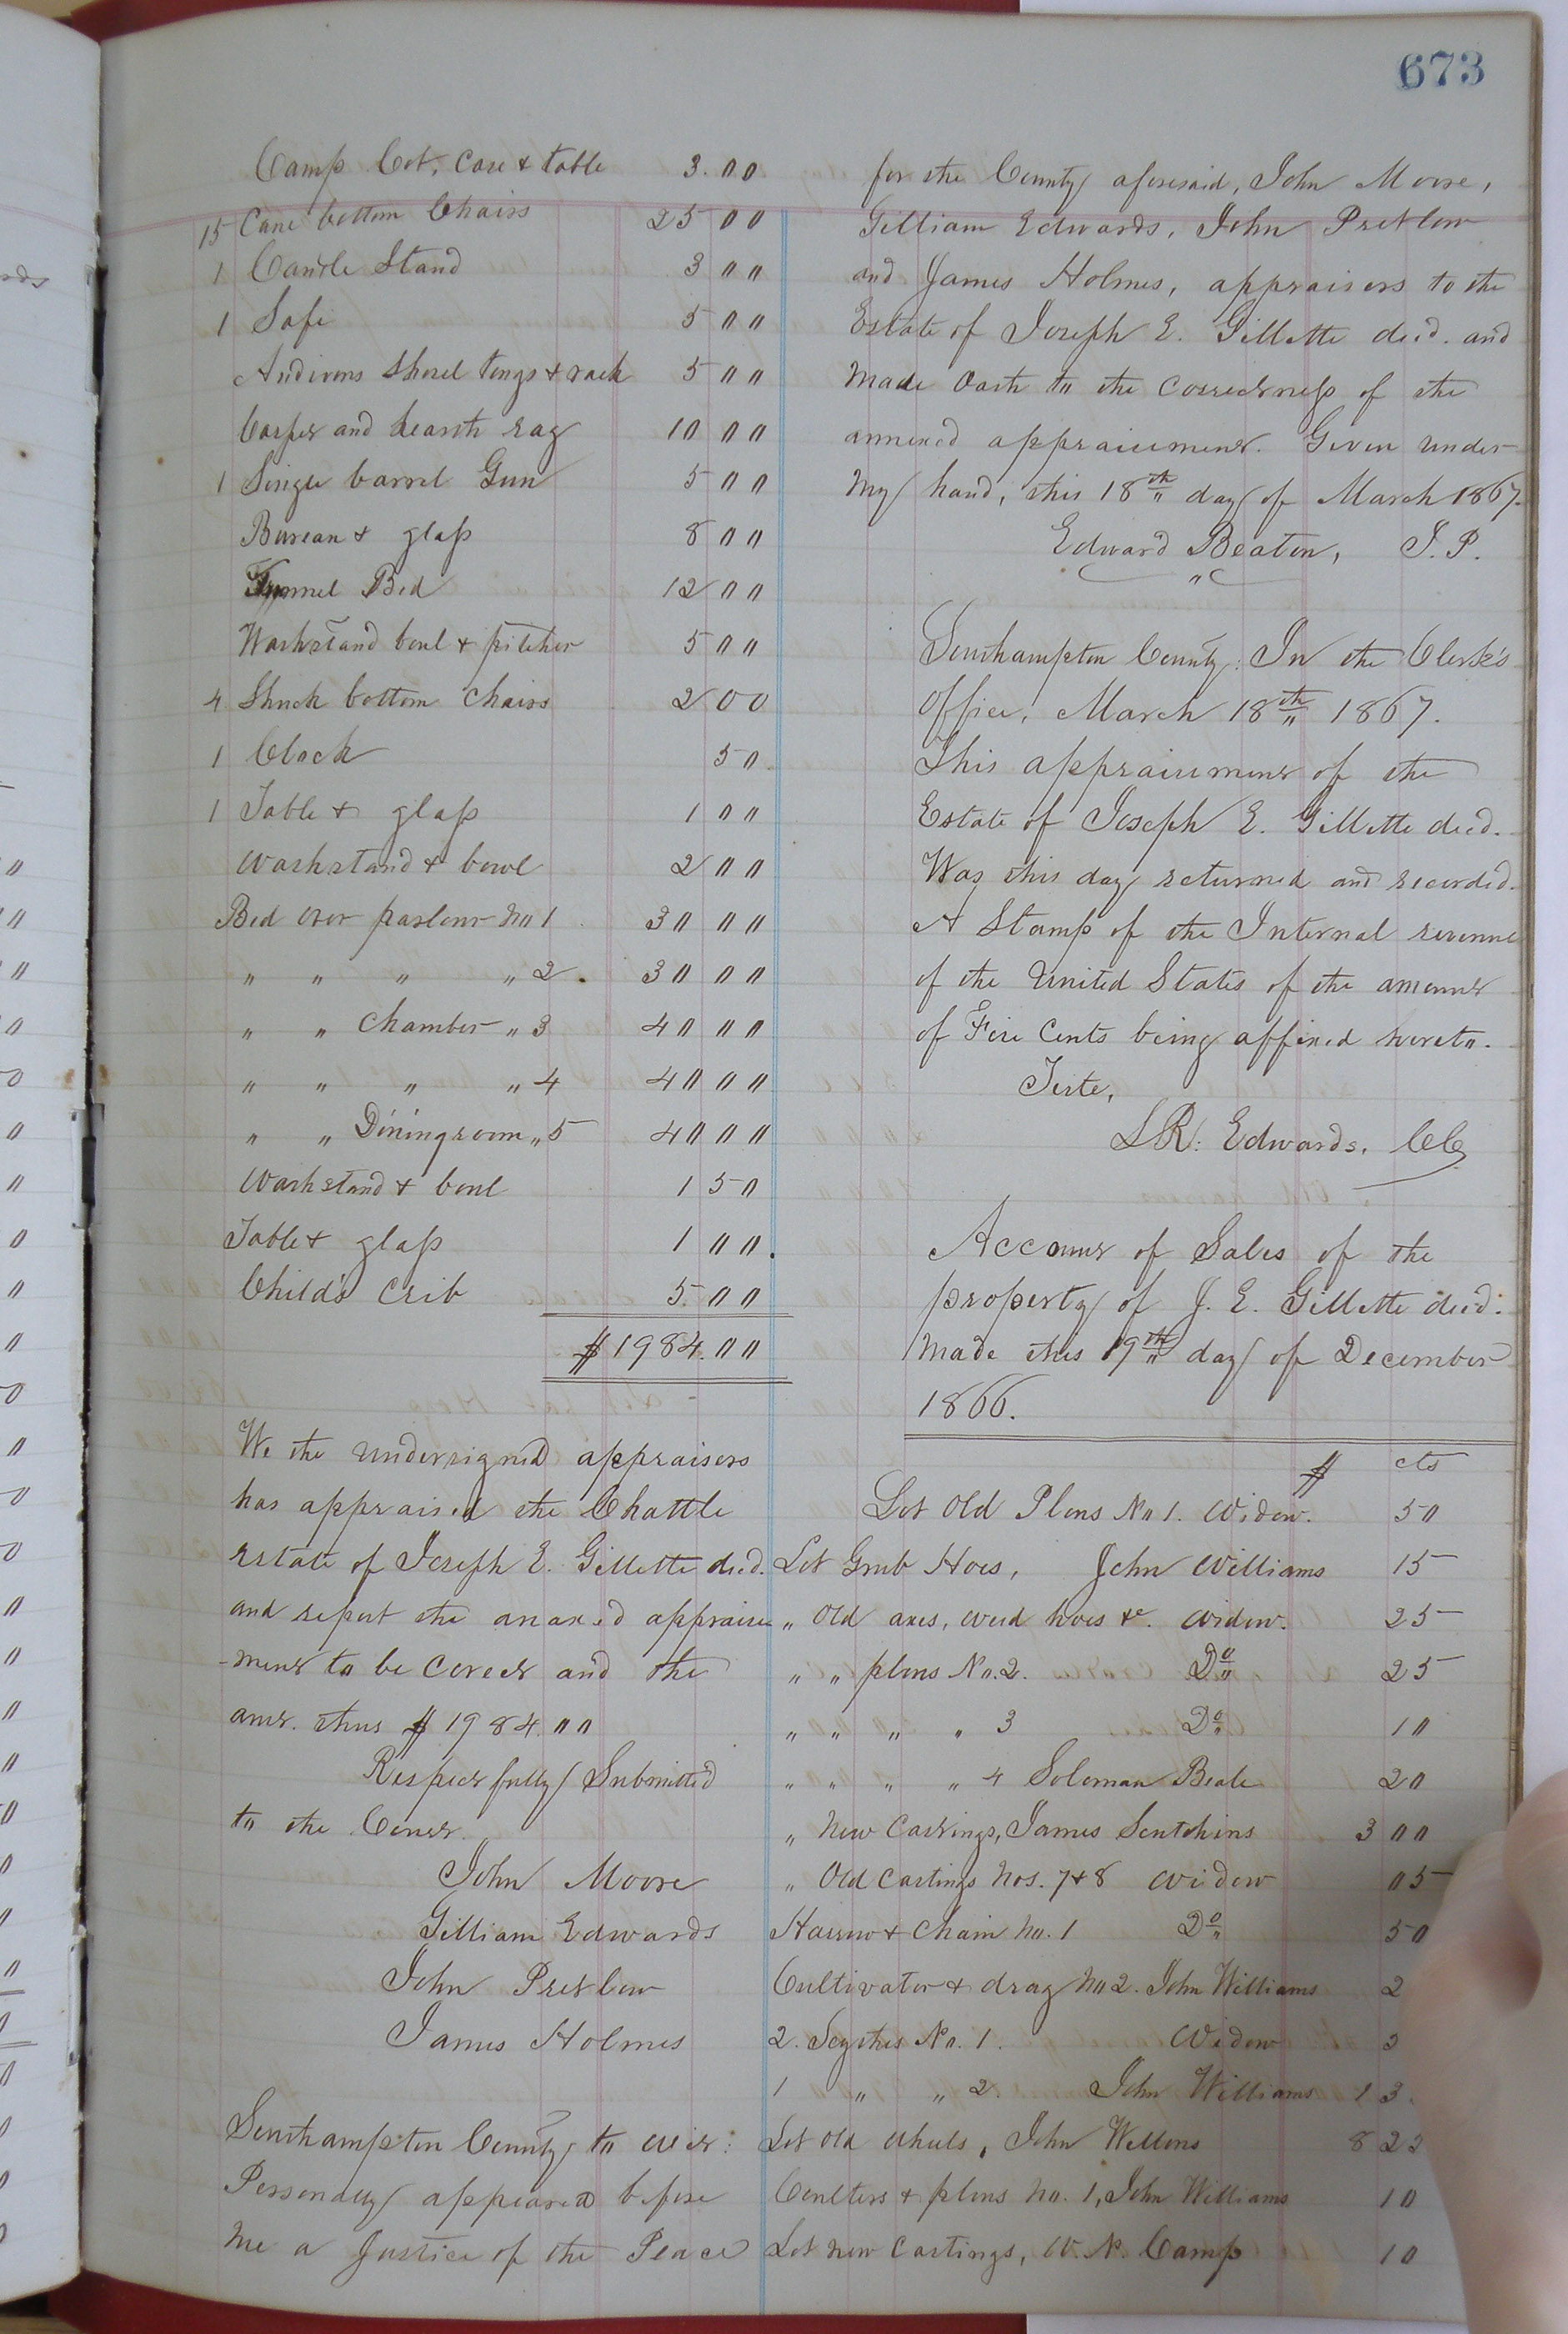 673
Camp Cot, Case & table 3.00
15 Cane bottom Chairs 25 00
1 Candle Stand 3 00
1 Safe 5 00
Andirons Shovel tongs & rack 5 00
Carpet and hearth rug 10 00
1 Single barrel Gun 5 00
Bureau & glass 8 00
Bed 12 00
Washstand bowl & pitcher 5 00
4 Shuck bottom Chairs 2 00
1 Clock 50
1 Table & glass 1 00
Washstand & bowl 2 00
Bed over parlour No 1 30 00
" " " " 2. 30 00
" " Chamber " 3 40 00
" " " " 4 40 00
" " Diningroom " 5 40 00
Washstand & bowl 1 50
Table & glass 1 00.
Child's Crib 5.00
$1984.00
We the undersigned appraisers
has appraised the Chattle
estate of Joseph E. Gillette decd.
and report the anaxed appraise
-ment to be correct and the
amt. thus $1984.00
Respectfully Submitted
to the Court.
John Moore
Gilliam Edwards
John Pretlow
James Holmes
Southampton County to wit:
Personally appeared before
me a Justice of the Peace
for the County aforesaid, John Moore,
Gilliam Edwards, John Pretlow
and James Holmes, appraisers to the
Estate of Joseph E. Gillette decd. and
made oath to the correctness of the
annexed appraisement. Given under
my hand, this 18th day of March 1867.
Edward Beaton, J. P.
Southampton County: In the Clerk's
Office, March 18th 1867.
This appraisement of the
Estate of Joseph E. Gillette decd.
Was this day returned and recorded.
A Stamp of the Internal revenue
of the United States of the amount
of Five Cents being affixed hereto.
Teste,
L R: Edwards, CC
Account of Sales of the
property of J. E. Gillette decd.
made this 19th day of December
1866.
$ cts
Lot Old Plows No 1. Widow. 50
Lot Grub Hoes, John Williams 15
" Old axes, weed hoes &c. Widow. 25
" " plows No. 2. Do 25
" " " " 3 Do 10
" " " " 4 Soloman Beale 20
" New Castings, James 3 00
" Old Castings Nos. 7 & 8 Widow 05
Harrow & Chain No. 1 Do 50
Cultivator & drag No 2. John Williams 2
2. Scythes No. 1. Widow
1 " " 2. John Williams 1 3
Lot Old Wheels, John Wellons 8 22
Coulters & plows No. 1, John Williams 10
Lot new Castings, W. N. Camp 10